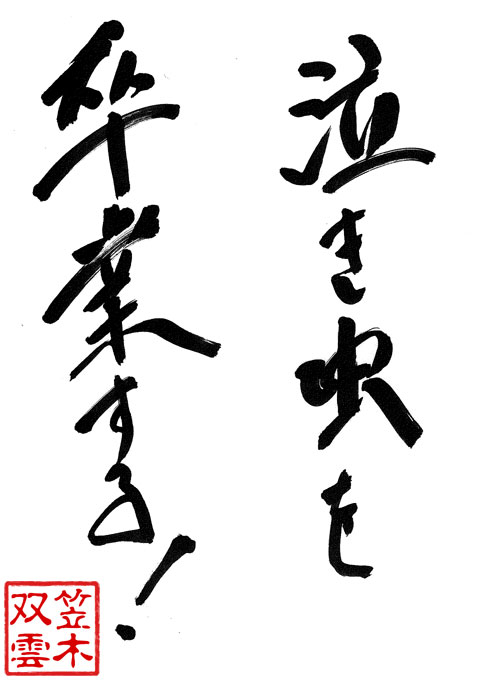 泣き虫を
卒業する!
笠木
双雲